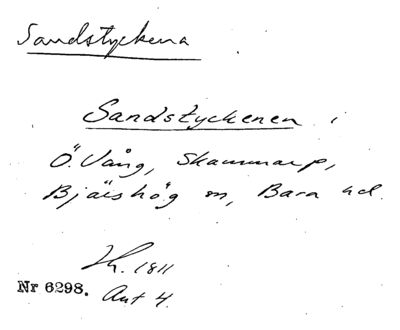 Sandstyckena
Sandstyckenen i
Ö. Vång, Skammarp,
Bjäishög sn, Bara hd.
Kh. 1811
Nr 6298. Akt 4.